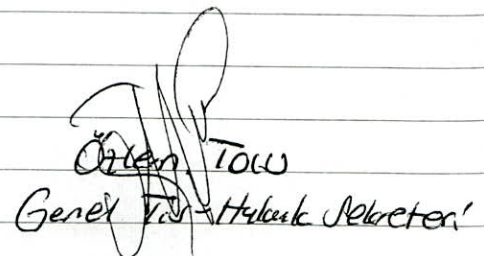 Özlem Tolu
Genel TİS-Hukuk Sekreteri